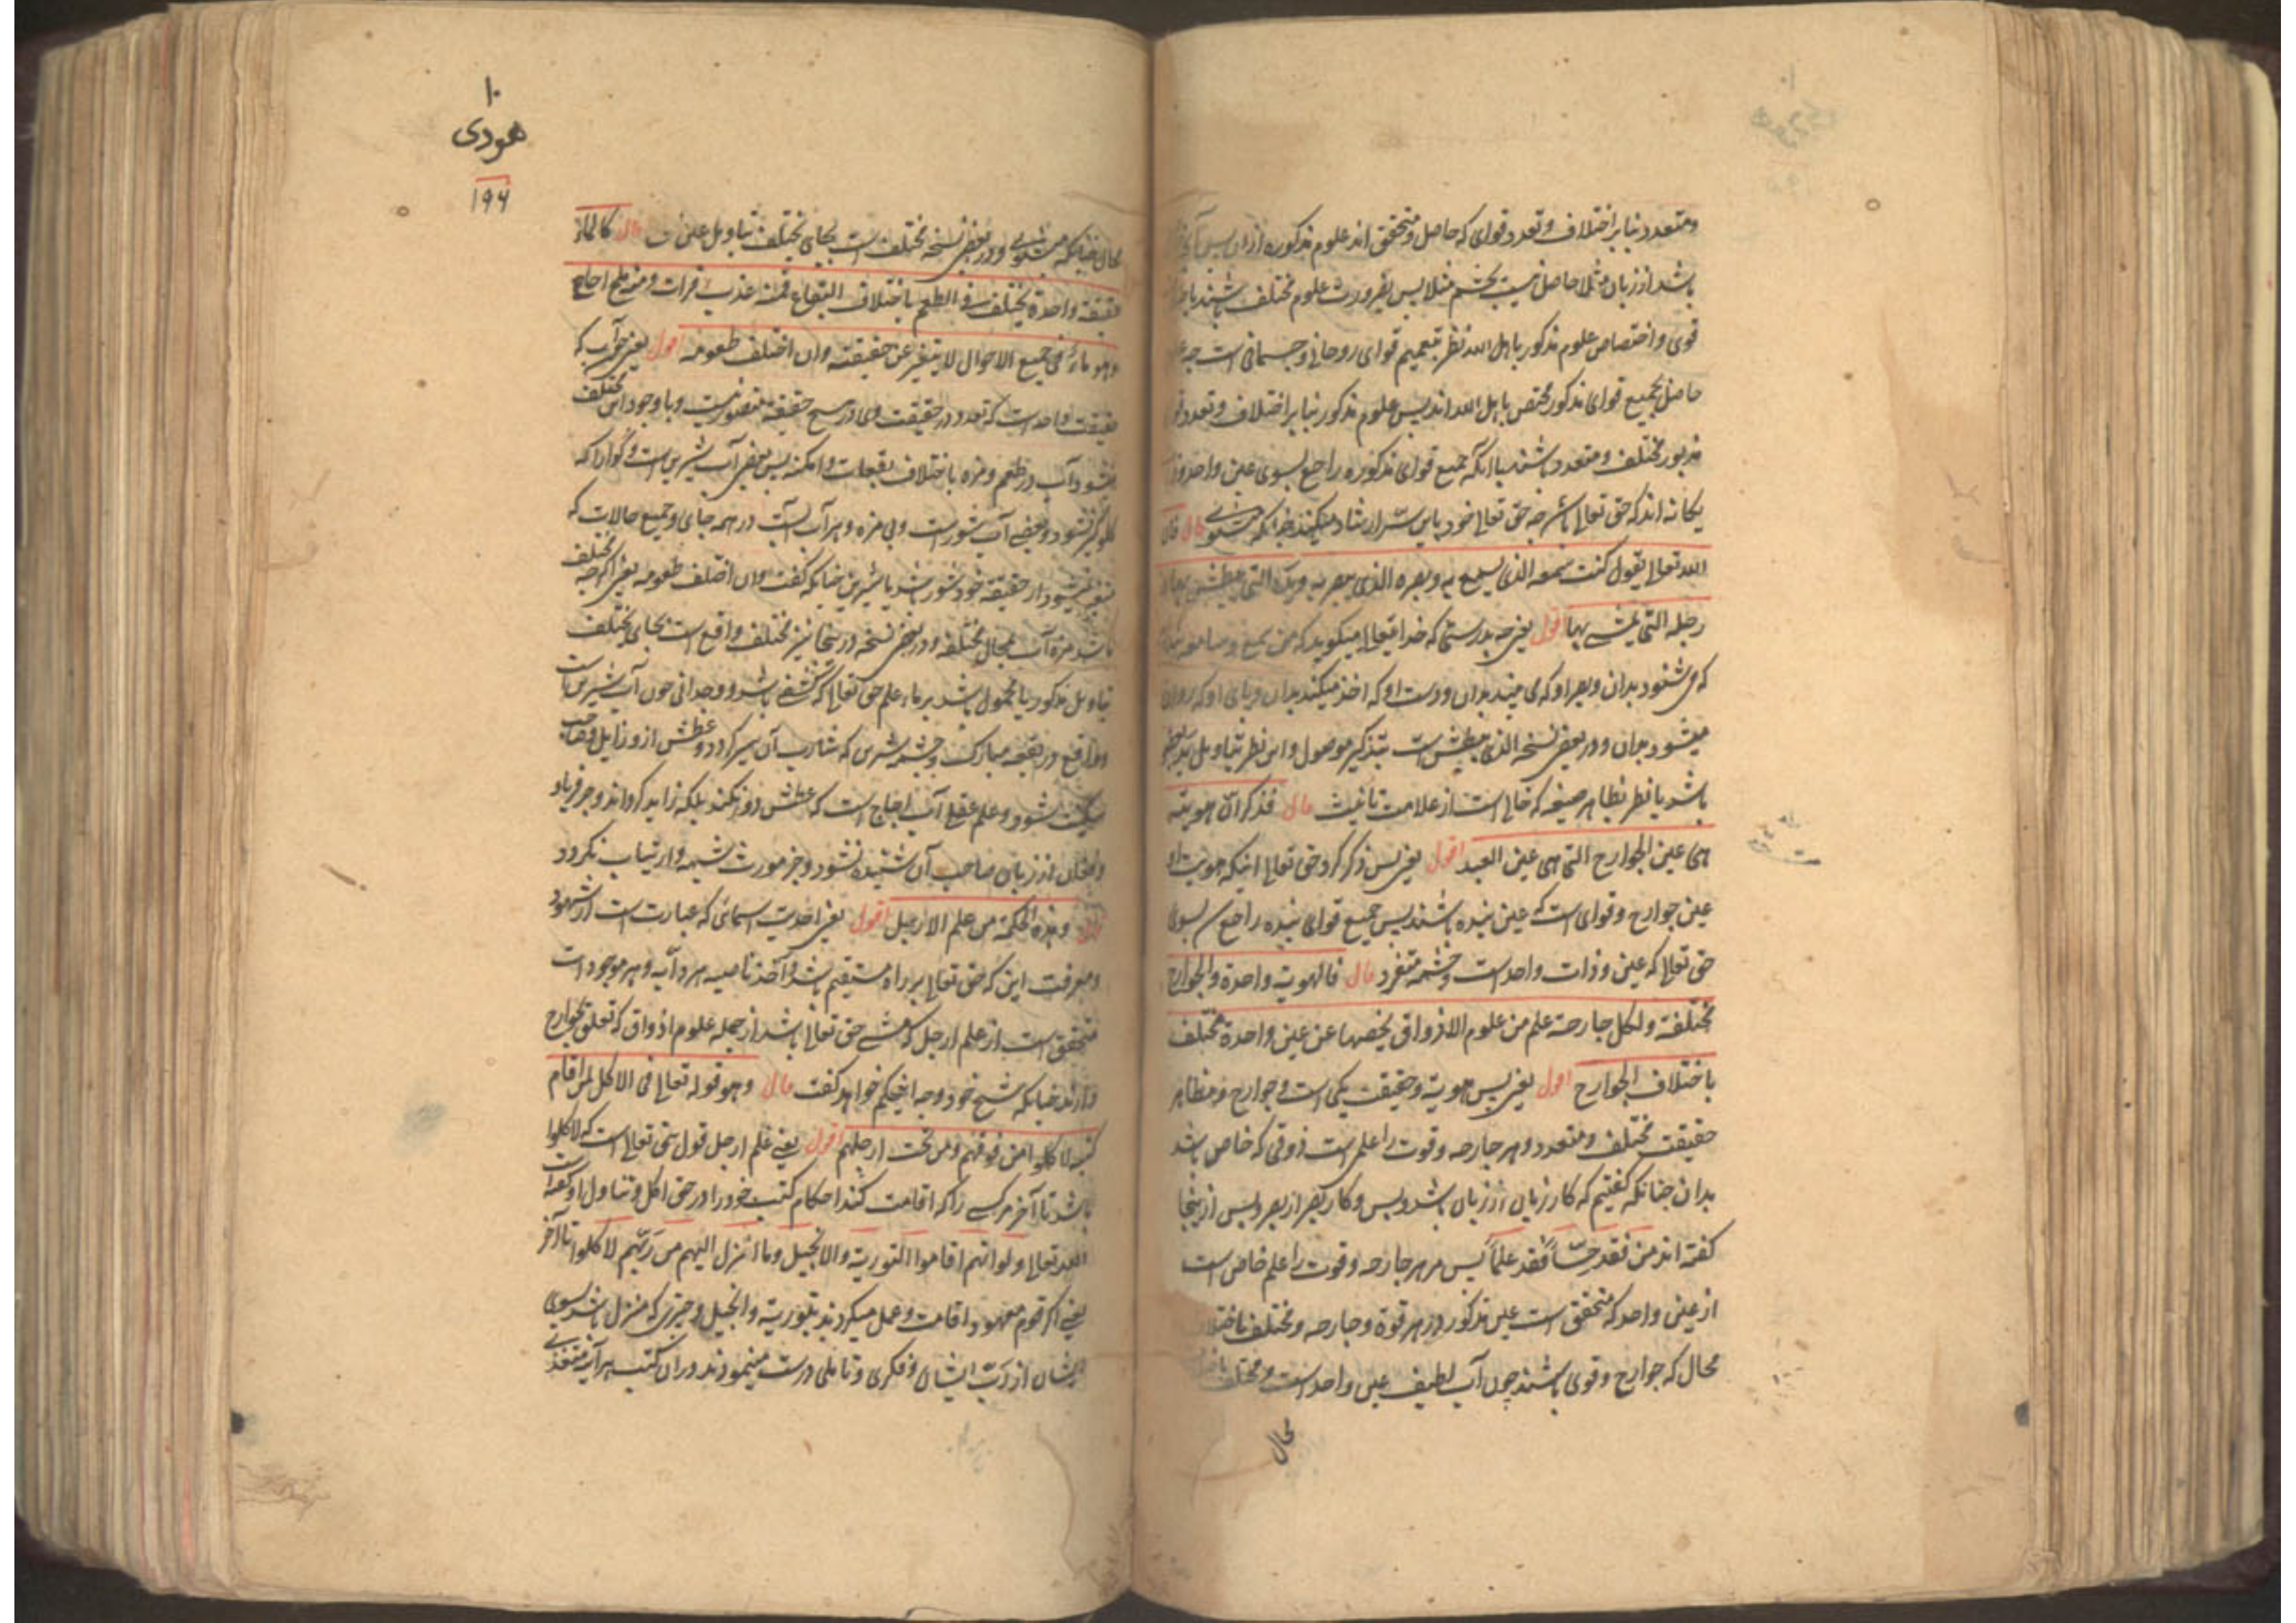 ومتعدد بنابر اختلاف وتعدد قوای که حاصل ومتحقق اند علوم مذکوره ازان پس آنچه
باشد از زبان مثلا حاصل نیست بچشم مثلا پس بضرورت علوم مختلف باشند
قوی واختصاص علوم مذکور باهل الله نظر بتعمیم قوای روحانی وجسمانی است چه
حاصل بجمیع قوای مذکور مختص باهل الله اند پس علوم مذکور بنابر اختلاف وتعدد
مزبور مختلف ومتعدد باشند باآنکه جمیع قوای مذکوره راجع بسوی عین واحد
یکانه اند که حق تعالی باشد چه حق تعالی خود باین سر ارشاد میکند چنانکه میشنوی قال فان
الله تعالی یقول کنت سمعه الذی یسمع به وبصره الذی یبصر به ویده التی یبطش بها و
رجله التی یمشی بها اقول یعنی چه بدرستی که خدایتعالی میکوید که من سمع وسامعه
که می شنود بدان وبصر او که می بیند بدان ودست او که اخذ میکند بدان وپای او که روان
میشود بدان ودر بعضی نسخه الذی یبطش است بتذکیر موصول واین نظر بتاویل ید
باشد یا نظر بظاهر صیغه که خالی است از علامت تانیث قال فذکر ان هویته
هی عین الجوارح التی هی عین العبد اقول یعنی پس ذکر کرد حق تعالی اینکه هویت او
عین جوارح وقوای است که عین بنده باشند پس جمیع قوای بنده راجع بسوی
حق تعالی که عین وذات واحد است وچشمه متفرد قال فالهویة واحدة والجوارح
مختلفة ولکل جارحة علم من علوم الاذواق یخصها عن عین واحدة مختلف
باختلاف الجوارح اقول یعنی پس هویة وحقیقت یکی است وجوارح ومظاهر
حقیقت مختلف ومتعدد وهر جارحه وقوت را علم است ذوقی که خاص باشد
بدان چنانکه کفتیم که کار زبان از زبان باشد وبس وکار بصر از بصر وبس ازینجا
کفته اند من فقد حسا فقد علما پس مر هر جارحه وقوت را علم خاص است
از عین واحد که متحقق است عین مذکور در هر قوة وجارحه ومختلف باختلاف
محال که جوارح وقوی باشند چون آب لطیف عین واحد است ومختلف
محال
۱۰
هودی
۱۹۶
محال چنانکه میشنوی ودر بعضی نسخه مختلف است بجای تختلف بتاویل عین قال کالماء
حقیقة واحدة یختلف فی الطعم باختلاف البقاع فمنه عذب فرات ومنه ملح اجاج
وهو ماء فی جمیع الاحوال لا یتغیر عن حقیقته وان اختلف طعومه اقول یعنی چو آب که
حقیقت واحد است که تعدد در حقیقت وی در هیچ حقیقة متصور نیست وبا وجود این مختلف
میشود آب در طعم ومزه باختلاف بقعات وامکنه پس بعضی آب شیرین است وکوارا که
کلوکیر نشود وبعضی آب شور است وبی مزه وهر آب آبست در همه جای وجمیع حالات که
متغیر نمیشود از حقیقة خود شور باشد یا شیرین چنانکه کفت وان اختلف طعومه یعنی اکرچه مختلف
باشد مزه آب بمحال مختلفه ودر بعضی نسخه درینجا نیز مختلف واقع است بجای یختلف
بتاویل مذکور یا محمول باشد بر ماء علم حق تعالی که کشفی باشد ووجدانی چون آب شیرین است
وواقع در بقعه مبارک وچشمه شیرین که شارب آن سیر کردد وعطش ازو زایل وصاحب
سکینت شود وعلم عقلی آب اجاج است که عطش دور نکند بلکه زاید کرداند وجز فریاد
وافغان از زبان صاحب آن شنیده نشود وجز مورث شبهه وارتیاب نکردد
قال وهذه الحکمة من علم الارجل اقول یعنی احدیت اسمائی که عبارت است از شهود
ومعرفت این که حق تعالی بر راه مستقیم باشد وآخذ ناصیه هر دابه وهر موجود است
متحقق است از علم ارجل که مشی حق تعالی باشد از جمله علوم اذواق که تعلق بجوارح
دارند چنانکه شیخ خود وجه اینحکم خواهد کفت قال وهو قوله تعالی فی الاکل لمن اقام
کتبه لاکلوا من فوقهم ومن تحت ارجلهم اقول یعنی علم ارجل قول حق تعالی است که لاکلوا
باشد تا آخر مر کسی را که اقامت کند احکام کتب خود را در حق اکل وتناول او کفته است
الله تعالی ولو انهم اقاموا التوریة والانجیل وما انزل الیهم من ربهم لاکلوا تا آخر
یعنی اکر قوم معهود اقامت وعمل میکردند بتوریة وانجیل وچیزی که منزل باشد بسوی
ایشان از رب ایشان وفکری وتاملی درست مینمودند دران کتب هر آینه